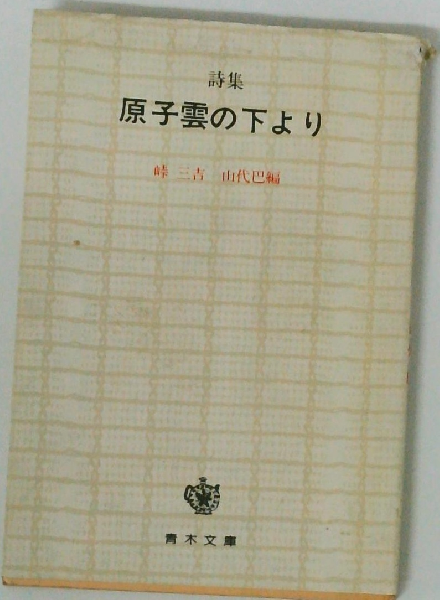 詩集
原子雲の下より
峠 三吉 山代巴編
青木文庫